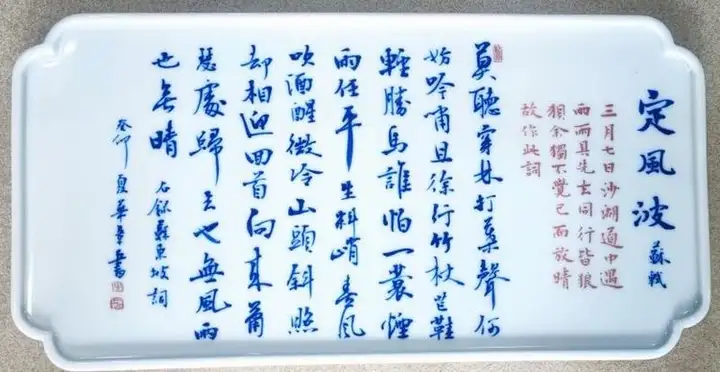 定風波 蘇軾
三月七日沙湖道中遇
雨雨具先去同行皆狼
狽余獨不覺已而放晴
故作此詞
莫聽穿林打葉聲何
妨吟嘯且徐行竹杖芒鞋
輕勝馬誰怕一蓑煙
雨任平生料峭春風
吹酒醒微冷山頭斜照
却相迎回首向來蕭
瑟處歸去也無風雨
也無晴 右錄蘇東坡詞
癸卯夏華章書